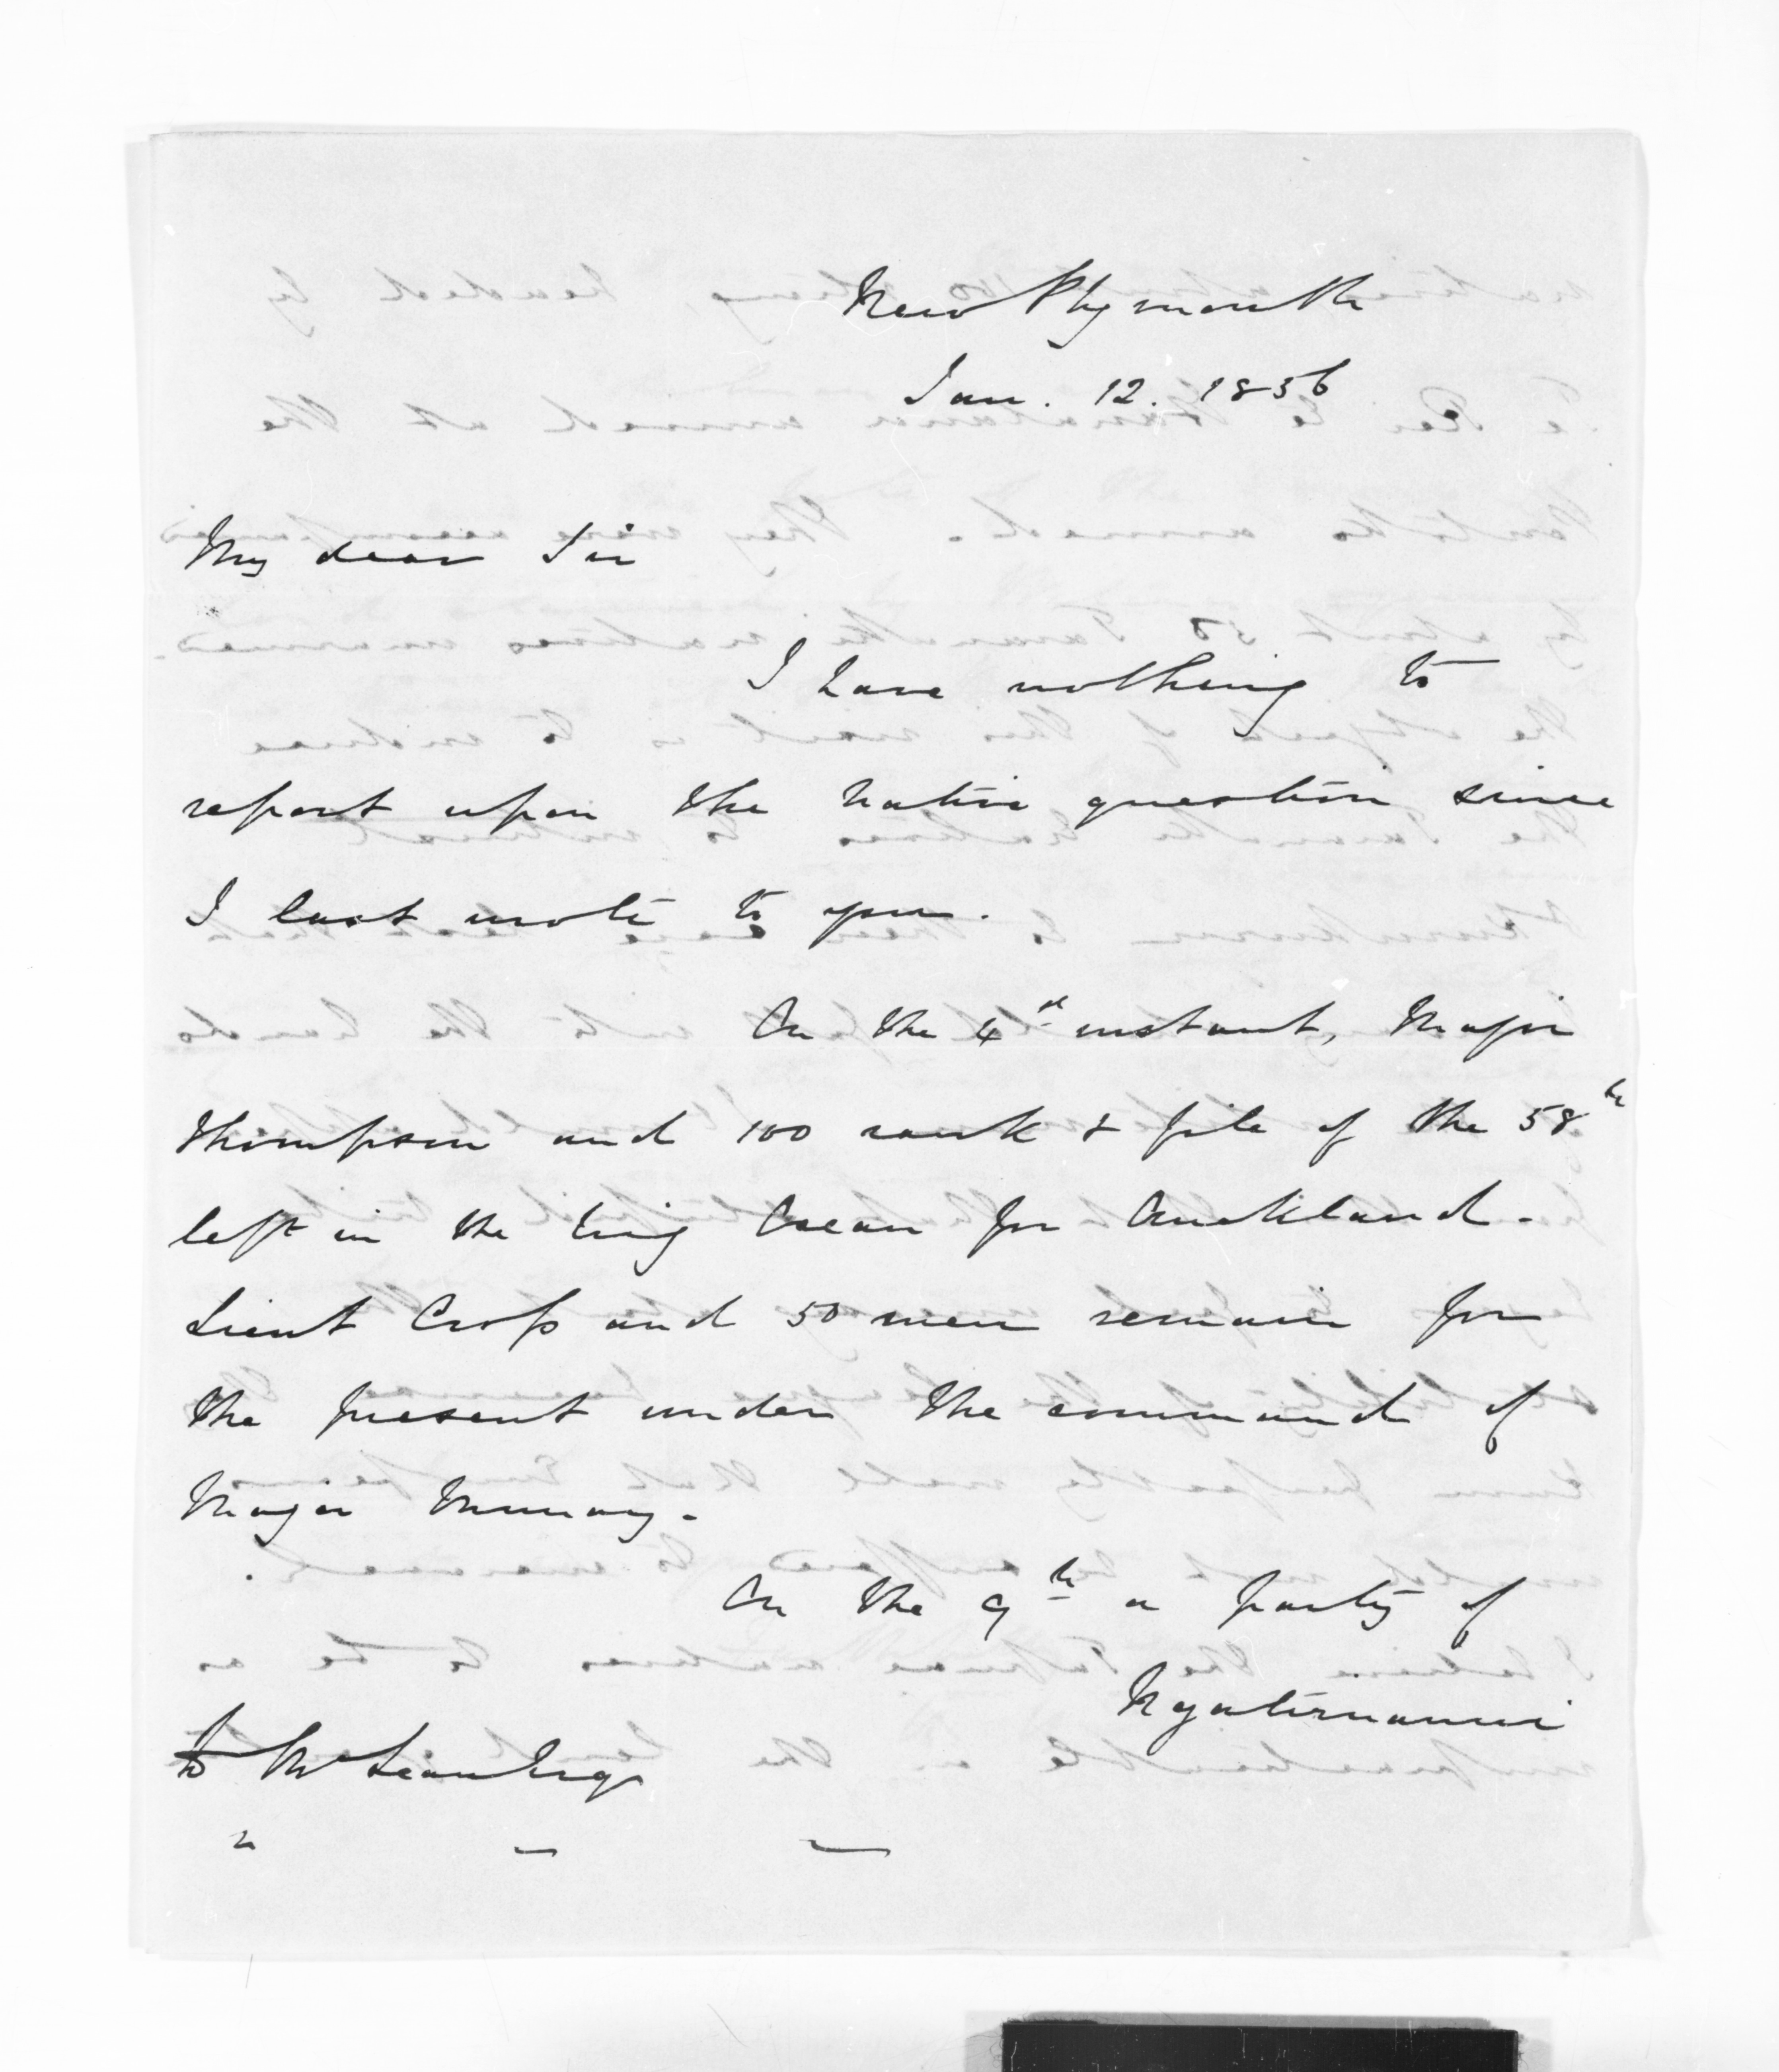 New Plymouth
Jan. 12. 1856
My dear Sir
I have nothing to
report upon the Native question since
I last wrote to you.
On the 4th instant, Major
Thompson and 100 rank & file of the 58th
left in the brig Ocean for Auckland.
Lieut Cross and 50 men remain for
the present under the command of
Major Murray.
On the 9th a party of
Ngatiruanui
D McLean Esqr
" - -